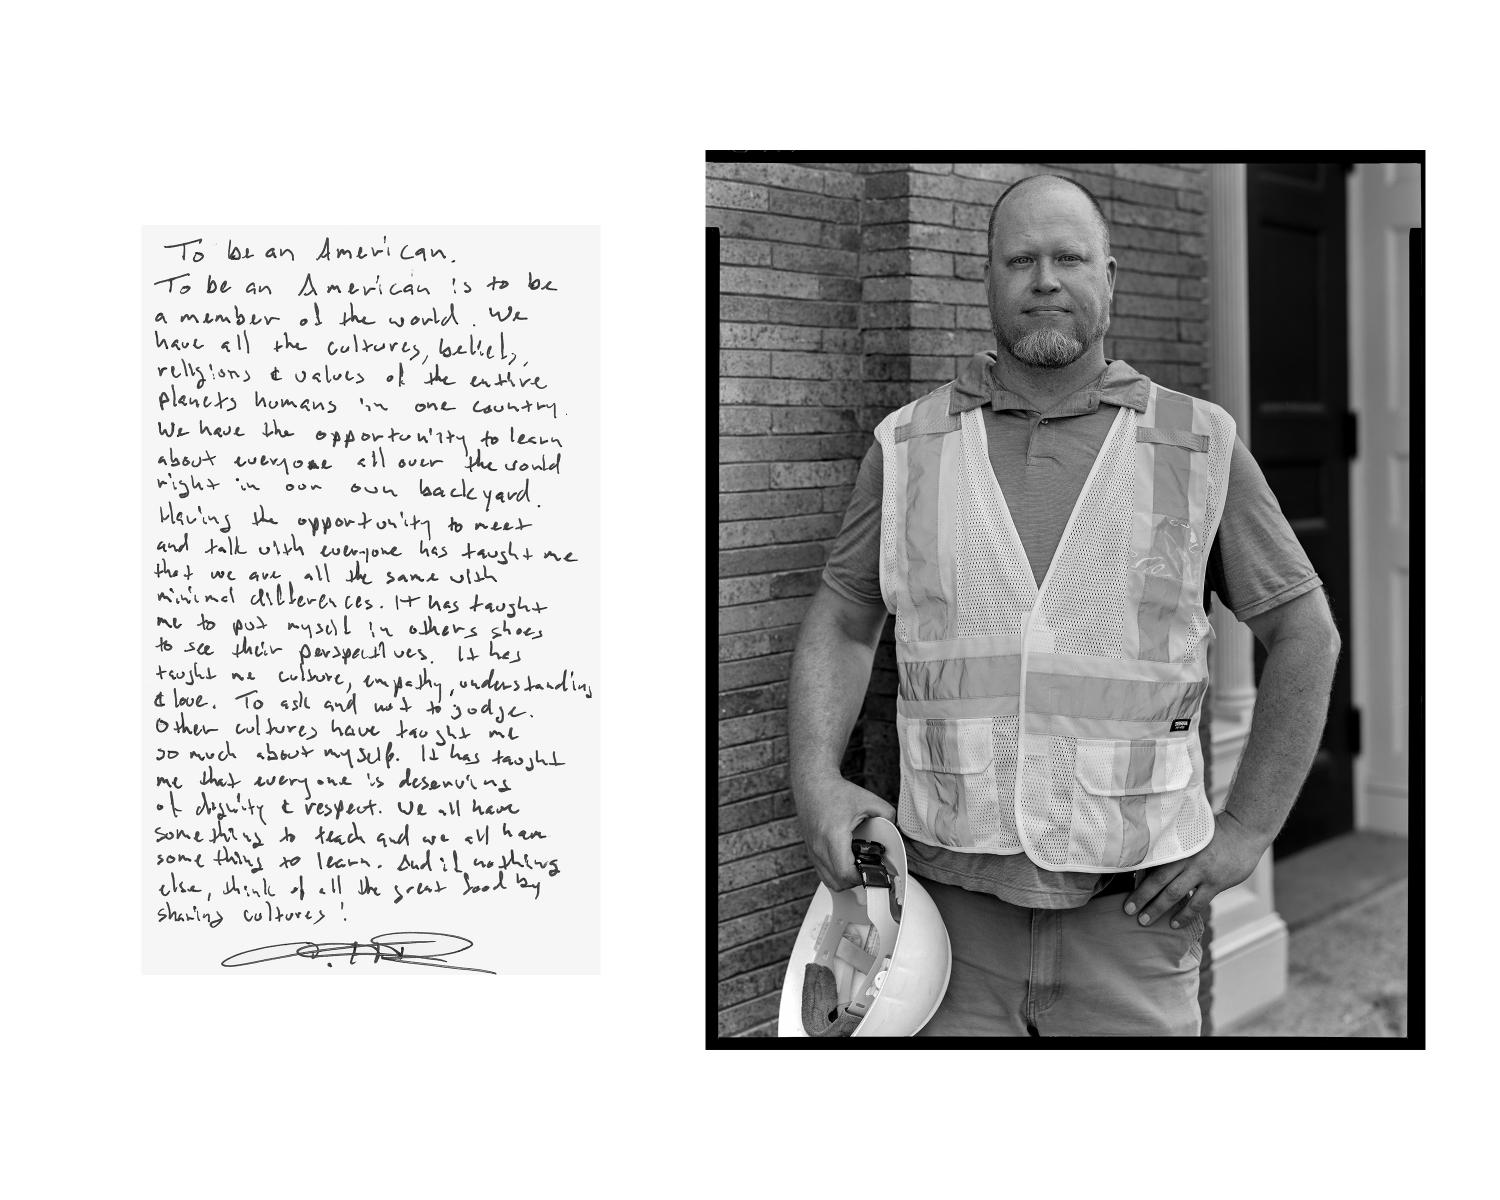 To be an American.
To be an American is to be
a member of the world. We
have all the cultures, beliefs,
religions & values of the entire
planets humans in one country.
We have the opportunity to learn
about everyone all over the world
right in our own backyard.
Having the opportunity to meet
and talk with everyone has taught me
that we are all the same with
minimal differences. It has taught
me to put myself in others shoes
to see their perspectives. It has
taught me culture, empathy, understanding
& love. To ask and not to judge.
Other cultures have taught me
so much about myself. It has taught
me that everyone is deserving
of dignity & respect. We all have
something to teach and we all have
something to learn. And if nothing
else, think of all the great food by
sharing cultures!